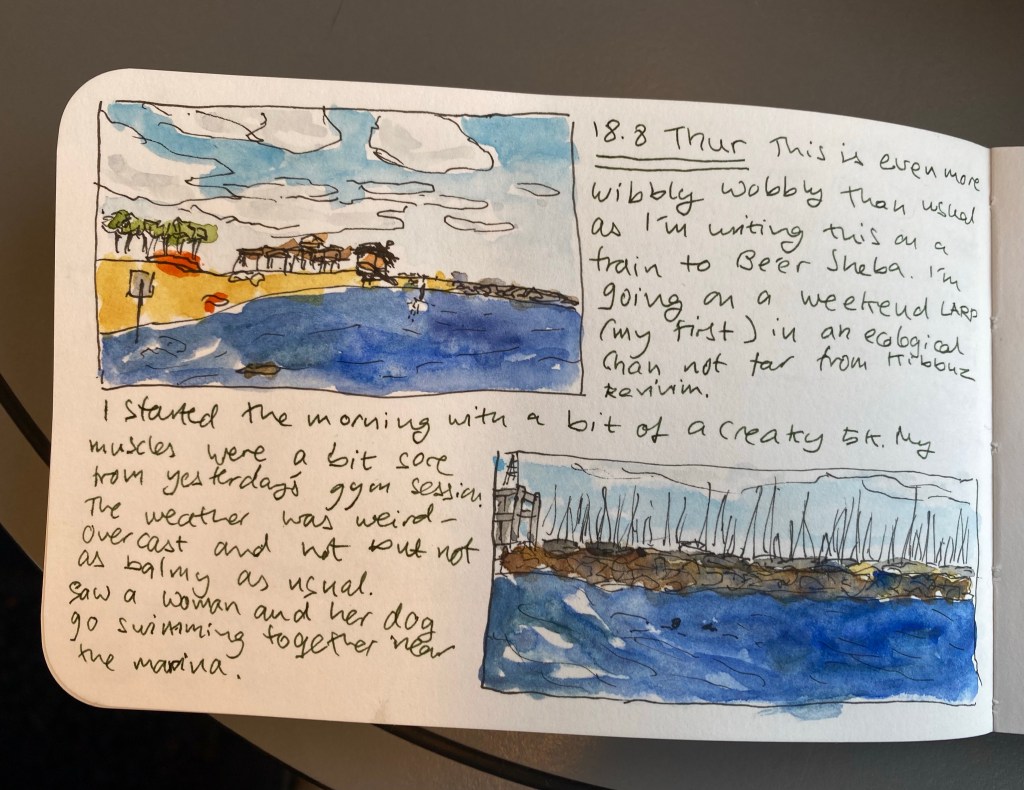 18.8 Thur This is even more
wibbly wobbly than usual
as I'm writing this on a
train to Be'er Sheba. I'm
going on a weekend LARP
(my first) in an ecological
chan not far from Kibbutz
Revivim.
I started the morning with a bit of a creaky 5K. My
muscles were a bit sore
from yesterday's gym session.
The weather was weird -
overcast and hot but not
as balmy as usual.
Saw a woman and her dog
go swimming together near
the marina.